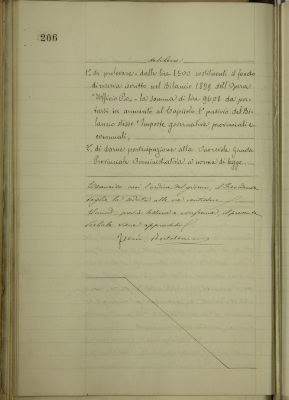 206
delibera
1° di prelevare dalle lire 1500 costituenti il fondo
di riserva iscritto nel Bilancio 1899 dell'Opera
Ufficio Pio, la somma di lire 96,01 da por-
tarsi in aumento al Capitolo 1° passivo del Bi-
lancio stesso "Imposte governative provinciali e
comunali,
2° di darne partecipazione alla Onorevole Giunta
Provinciale Amministrativa a norma di legge.
Esaurito così l'ordine del giorno, il Presidente
toglie la seduta alle ore
previa lettura e conferma, il presente
verbale viene approvato